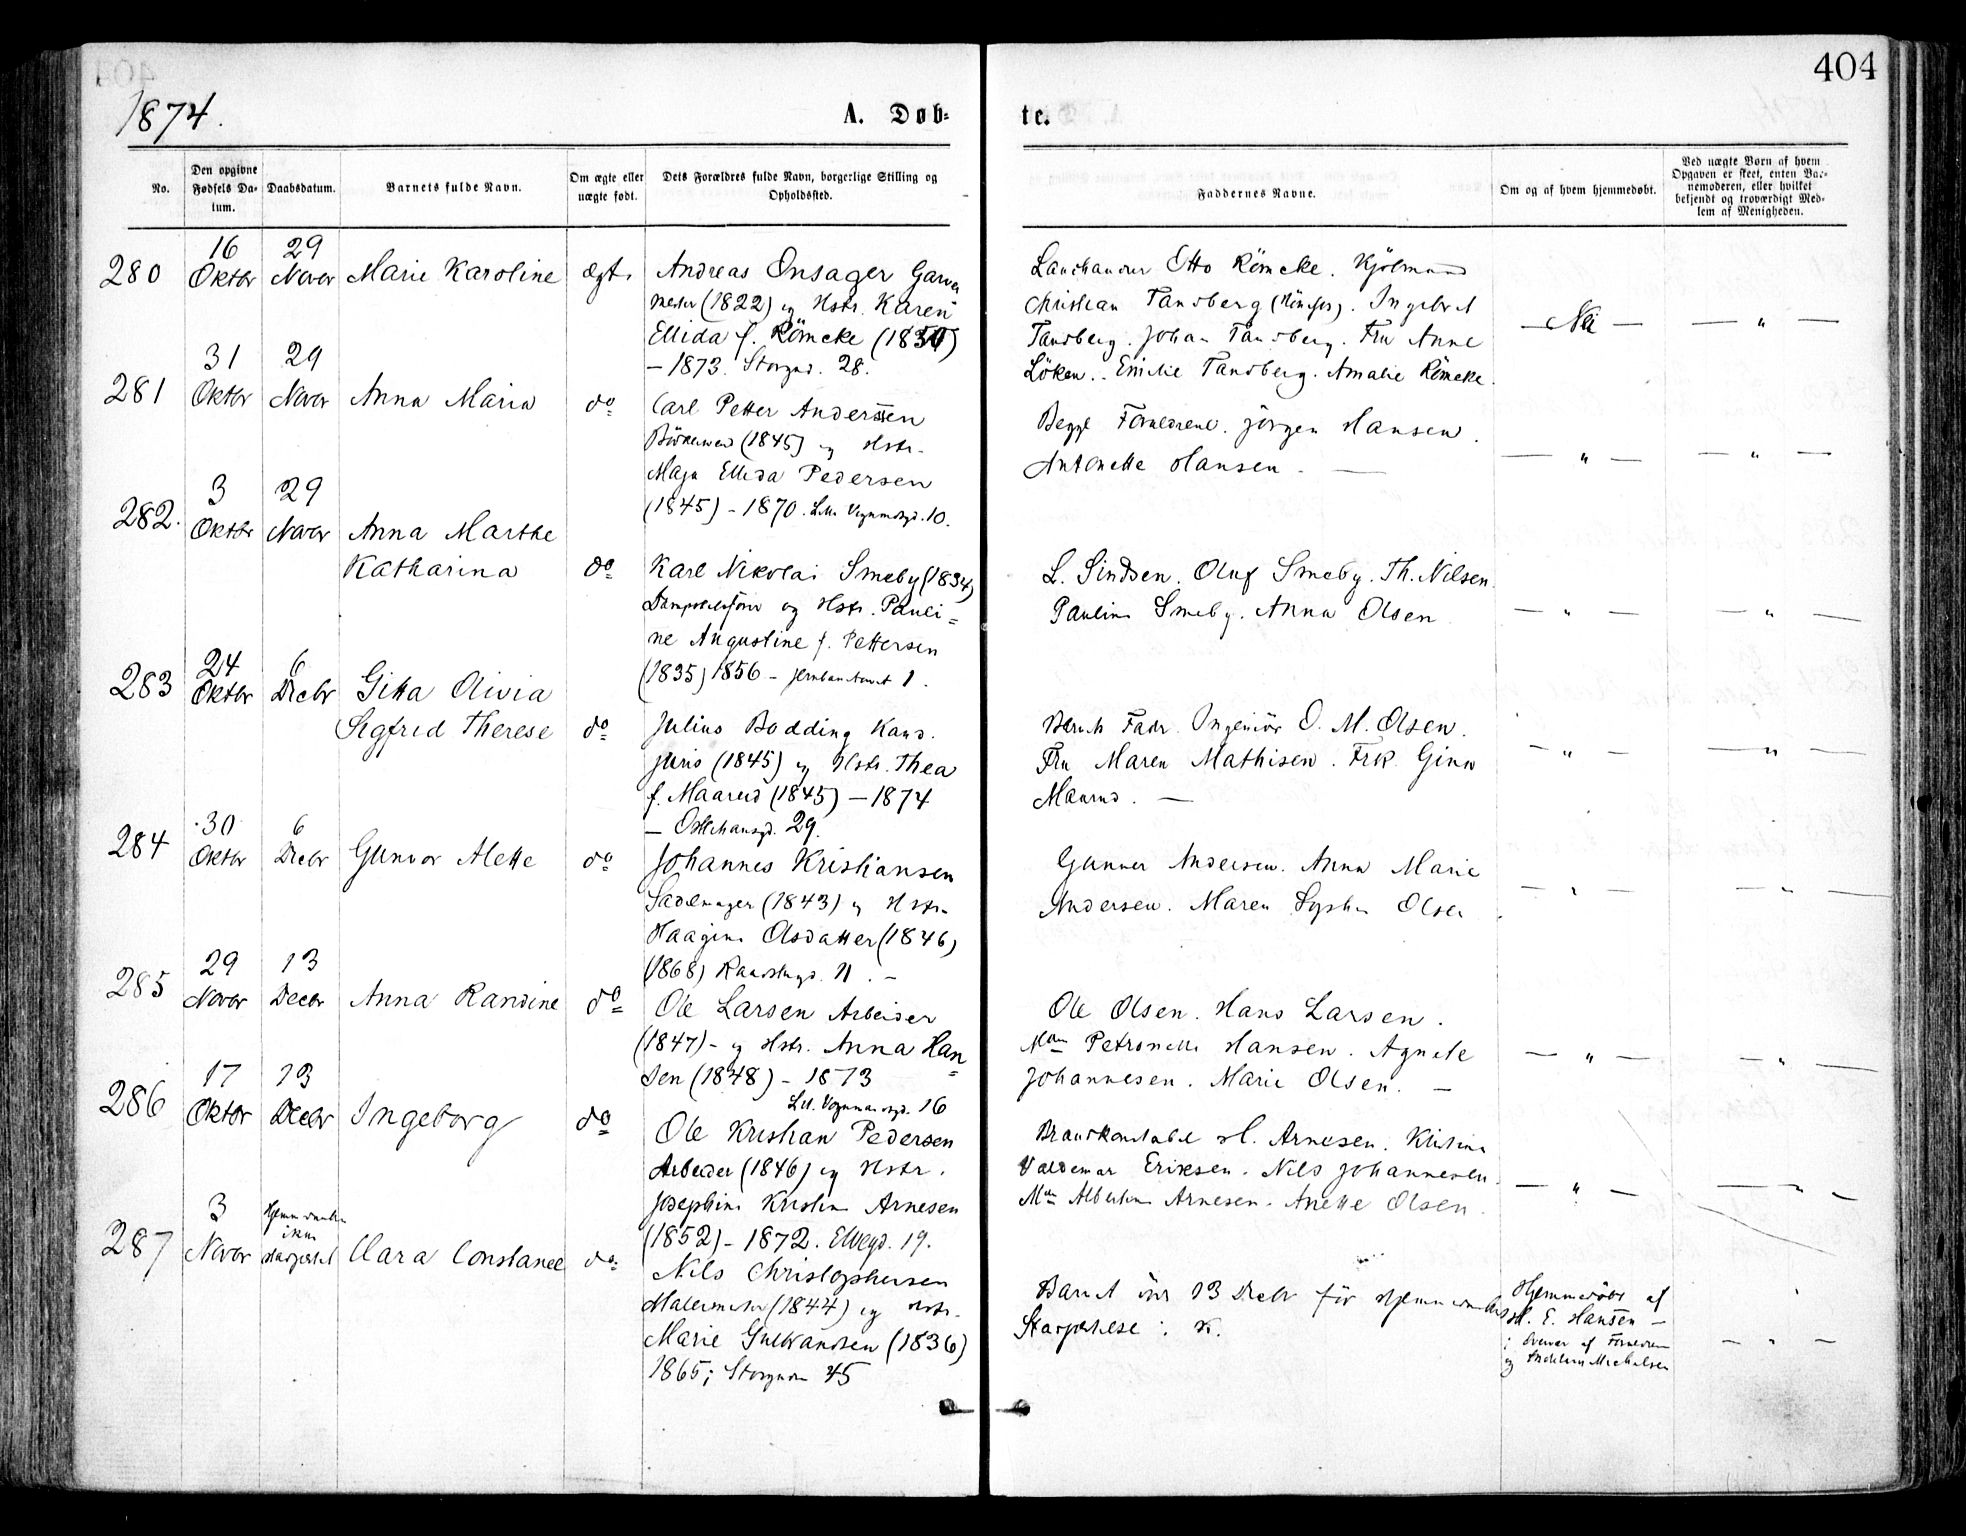 404
1874.
A. Døb-
te.
No.
Den opgivne Fødsels Da-tum.
Daabsdatum.
Barnets fulde Navn.
Om ægte eller uægte født.
Dets Forældres fulde Navn, borgerlige Stilling og Opholdssted.
Faddernes Navne.
Om og af hvem hjemmedøbt.
Ved uægte Børn af hvem Opgaven er skeet, enten Bar-nemoderen, eller hvilket bekjendt og troværdigt Med-lem af Menigheden.
280
16 Oktbr
29 Novbr
Marie Karoline
ægte
Andreas Onsager Garver
mester (1822) og Hstr. Karen
Ellida f. Römcke (1850)
- 1873. Storgd. 28.
Otto Römcke.
Christian Tandberg. Ingebret
Tandberg. Johan Tandberg. Fru Anne
Löken. Emilie Tandberg. Amalie Römcke.
— Nei —
— „ —
281
31 Oktbr
29 Novbr
Anna Maria
do
Carl Petter Anderssen
(1845) og Hstr.
Maja Ellida Pedersen
(1845) - 1870. 10.
Begge Forældrene. Jörgen Hansen.
Antonette Hansen. —
— „ —
— „ —
282.
3 Oktbr
29 Novbr
Anna Marthe
Katharina
do
Karl Nikolai Smeby (1834)
og Hstr. Pauli=
ne Augustine f. Pettersen
(1835) 1856 - 1.
L. Sindsen. Oluf Smeby. Th. Nilsen.
Pauline Smeby. Anna Olsen
— „ —
— „ —
283
24 Oktbr
6 Decbr
Gitta Olivia
Sigfrid Therese
do
Julius Bodding Kand.
juris (1845) og Hstr. Thea
f. Maarud (1845) — 1874
— 29.
Barnets Fader. Ingeniör O. M. Olsen.
Fru Maren Mathisen. Frk. Gina
Maarud. —
— „ —
— „ —
284
30 Oktbr
6 Decbr
Gunvor Alette
do
Johannes Kristiansen
Sadelmager (1843) og Hstr.
Haagine Olsdatter (1846)
(1868) 11. -
Gunner Andersen. Anna Marie
Andersen. Maren Sophie Olsen
— „ —
— „ —
285
29 Novbr
13 Decbr
Anna Randine
do
Ole Larsen Arbeider
(1847) - og Hstr. Anna Han=
sen (1848) - 1873
16
Ole Olsen. Hans Larsen.
Petronelle Hansen. Agnete
Johannesen. Marie Olsen. —
— „ —
— „ —
286
17 Oktbr
13 Decbr
Ingeborg
do
Ole Kristian Pedersen
Arbeider (1846) og Hstr.
Josephine Kristine Arnesen
(1852) - 1872. Elvegd. 19.
Brandkonstabel H. Arnesen.
Valdemar Eriksen. Nils Johannesen.
Albertine Arnesen. Anette Olsen.
— „ —
— „ —
287
3 Novbr
Clara Constance
do
Nils Christophersen
Malermester (1844) og Hstr.
Marie Gulbrandsen (1836)
1865; Storgaden 45
Barnet 13 Decbr för
K.
Hjemmedöbt af
H. E. Hansen —
i Overvær af Forældrene
og Michelsen
— „ —